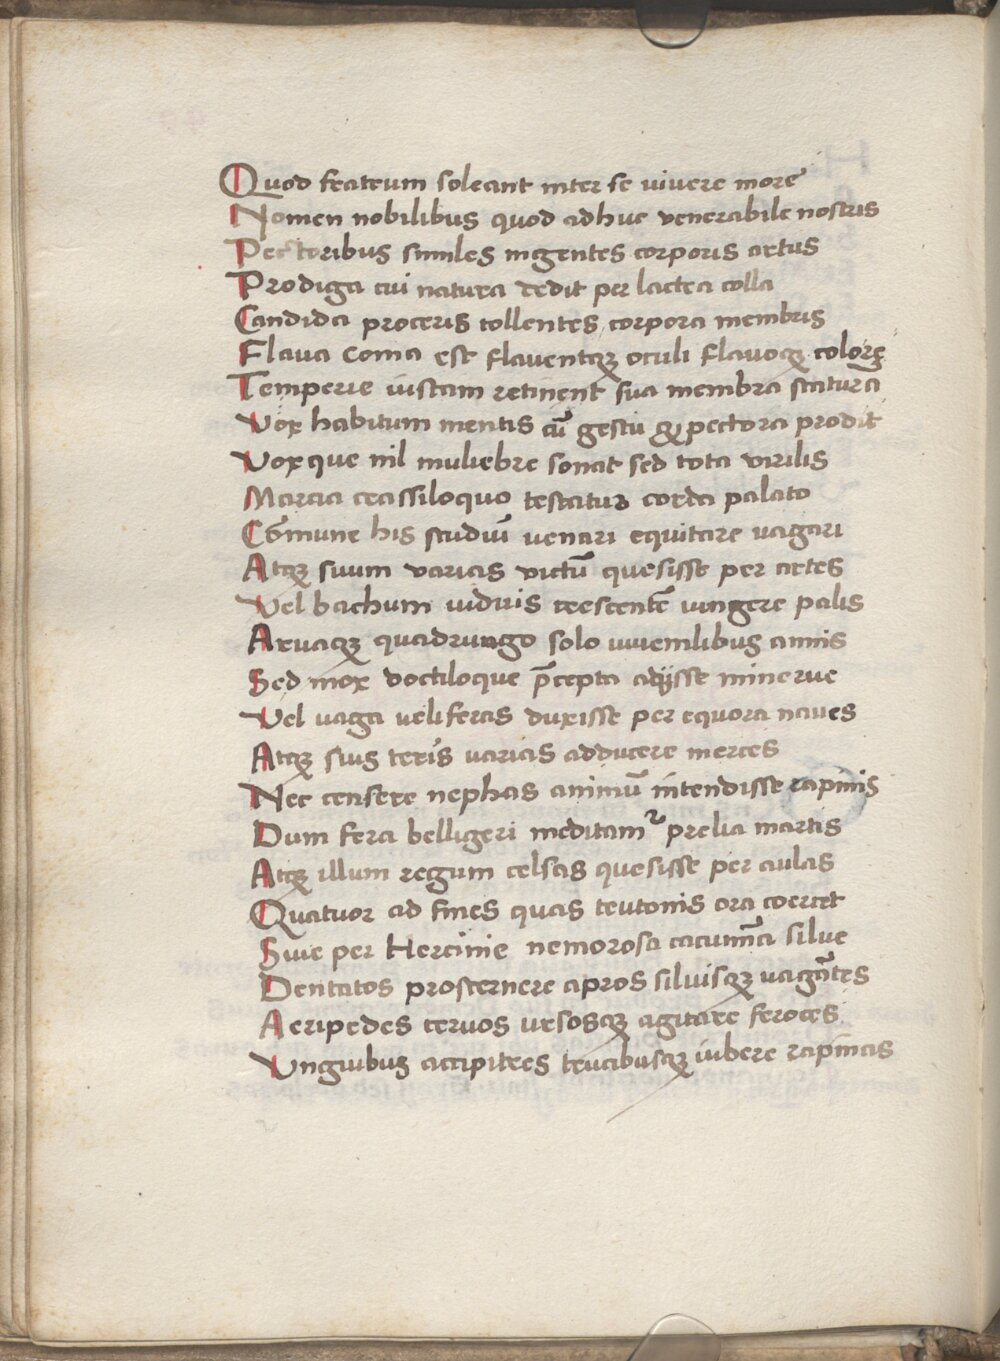 Quod fratrum soleant inter se vivere more
Nomen nobilibus quod adhuc venerabile nostris
Pectoribus similes ingentes corporis artus
Prodiga cui natura dedit per lactea colla
Candida proceris tollentes corpora membris
Flava coma est flaventqꝫ oculi flavoqꝫ colorę
Temperie iustam retinent sua membra statura
Vox habitum mentis cū gestu qꝫ pectora prodit
Vox que nil muliebre sonat sed tota virilis
Marcia crassiloquo testatur corda palato
Cōmune his studiū venari equitare vagari
Atqꝫ suum varias victū quesisse per artes
Vel bachum viduis crescentē iungere palis
Arvaqꝫ quadruugo solo iuvenilibus annis
Sed mox doctiloque p̄cepta adijsse minerve
Vel vaga veliferas duxisse per equora naves
Atqꝫ suis terris varias adducere merces
Nec censere nephas animū intendisse rapinis
Dum fera belligeri meditamᷣ prelia martis
Atqꝫ illum regum celsas quesisse per aulas
Quatuor ad fines quas teutonis ora coercet
Sive per Hercinie nemorosa cacumīa silve
Dentatos prosternere apros silvisqꝫ vagātes
Aeripedes cervos ursosqꝫ agitare feroces
Unguibus accipitres trucibusqꝫ iubere rapinas